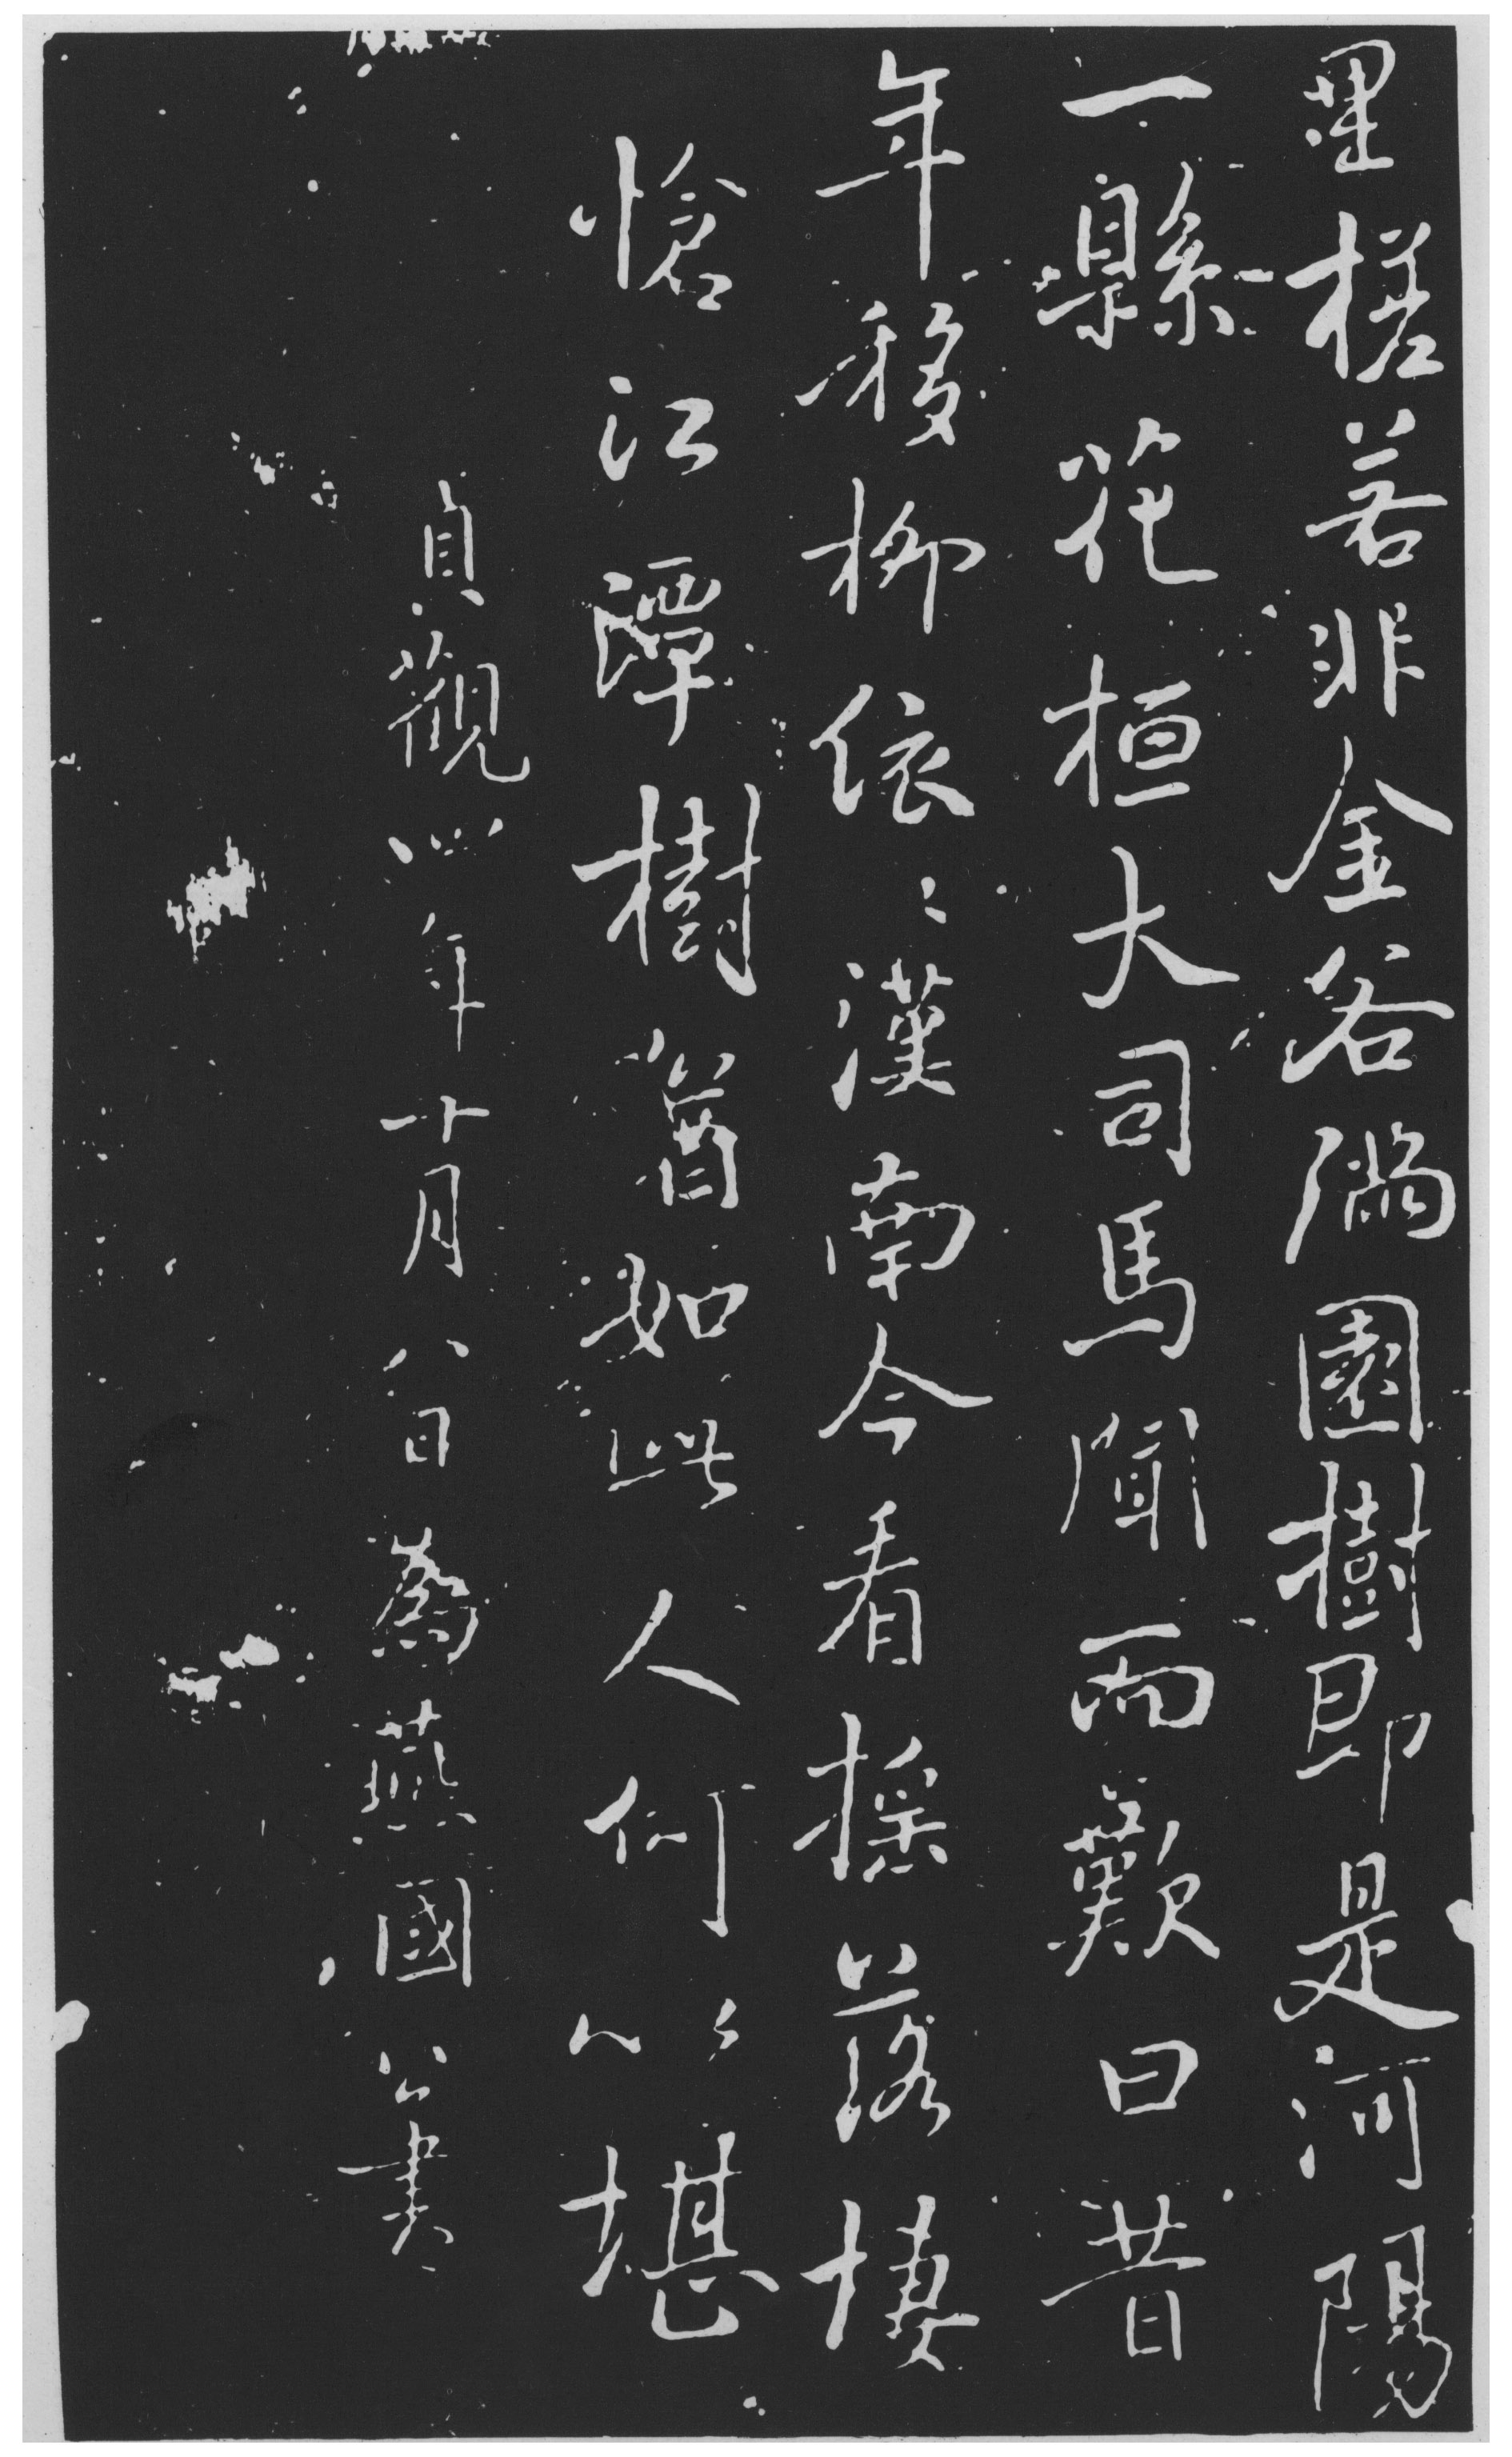 里槎若非金谷満園樹即是河陽
一縣花桓大司馬聞而歎曰昔
年移柳依〻漢南今看搖落悽
愴江潭樹酋如此人何以堪
貞觀四年十月八日為燕國公書